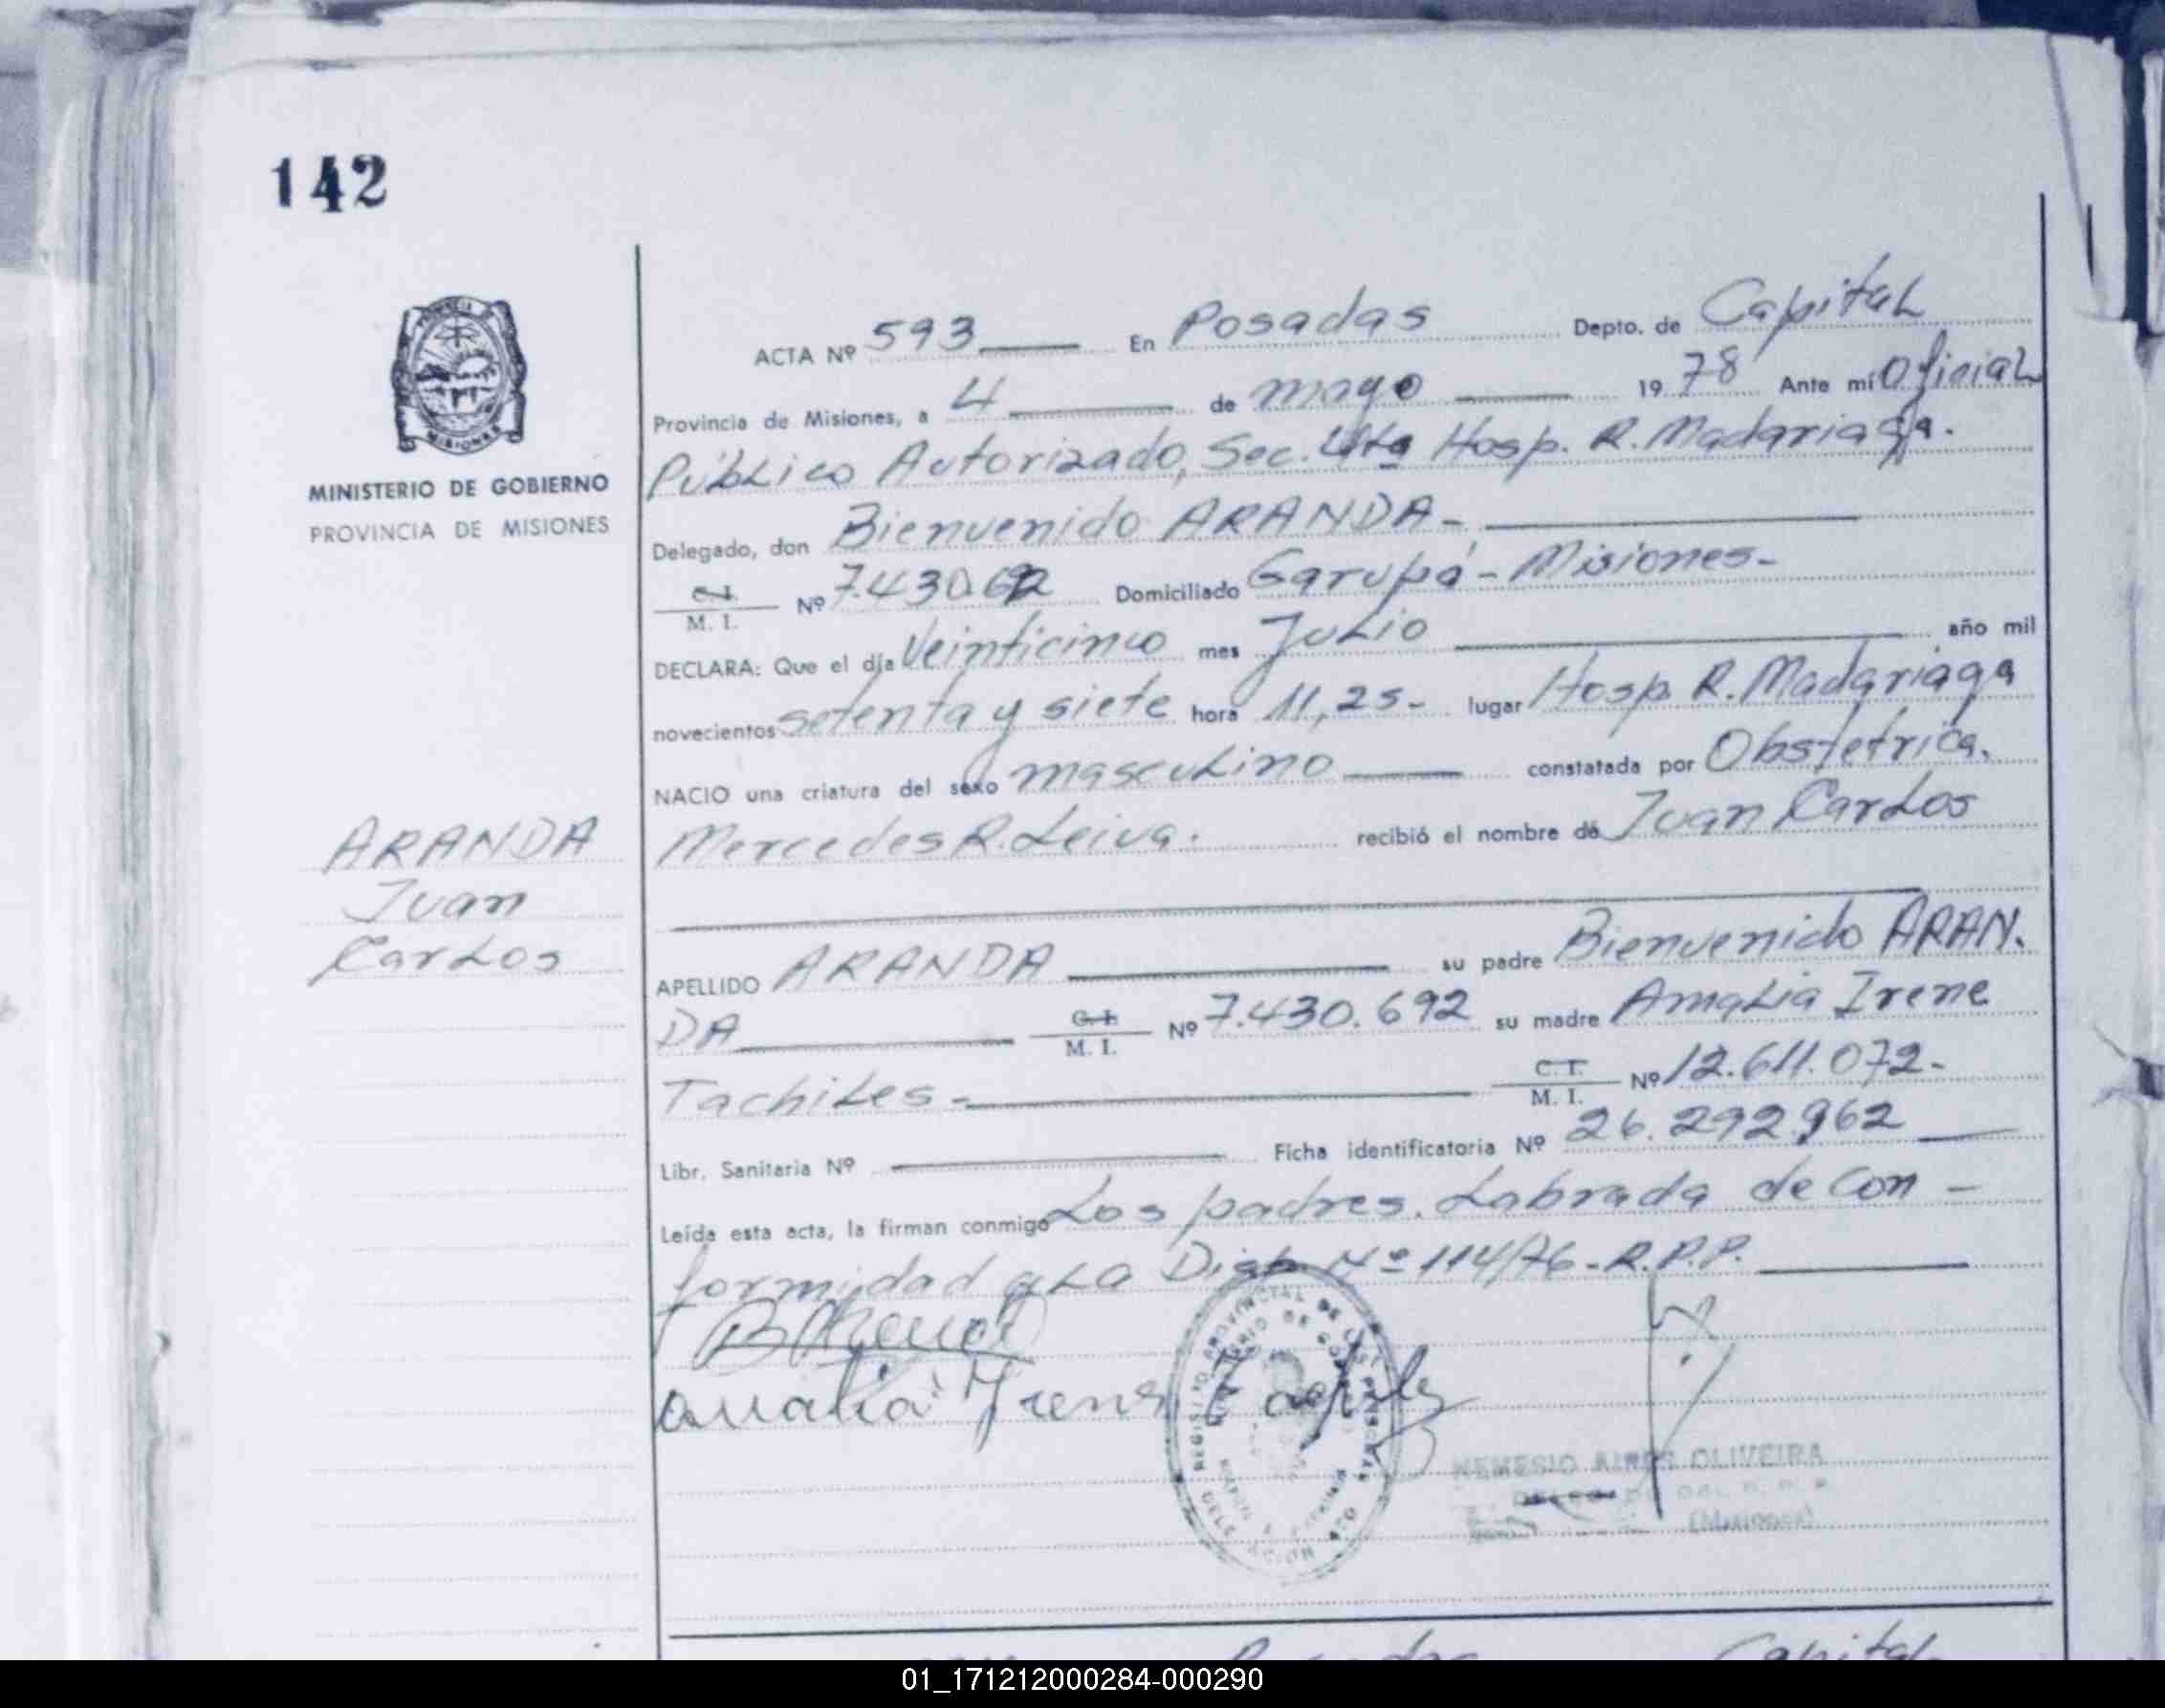 142
MINISTERIO DE GOBIERNO
PROVINCIA DE MISIONES
ACTA Nº 593 En Posadas Depto. de Capital
Provincia de Misiones, a 4 de mayo 1978 Ante mí Oficial
Público Autorizado, Sec. Hosp. R. Madariaga.
Delegado, don Bienvenido ARANDA-
C. I.
M. I. Nº 7.430.692 Domiciliado Garupá - Misiones-
DECLARA: Que el día Veinticinco mes Julio año mil
novecientos setenta y siete hora 11,25- lugar Hosp. R. Madariaga
NACIO una criatura del sexo masculino constatada por Obstetrica.
Mercedes R. Leiva. recibió el nombre de Juan Carlos
ARANDA
Juan
Carlos
APELLIDO ARANDA su padre Bienvenido ARAN.
DA C. I.
M. I. Nº 7.430.692 su madre Amalia Irene
Tachiles- C. I.
M. I. Nº 12.611.072-
Libr. Sanitaria Nº Ficha identificatoria Nº 26.292.962
Leída esta acta, la firman conmigo Los padres. Labrada de Con-
formidad a La Disp. Nº 114/76-R.P.P.
Amalia Irene
REGISTRO PROVINCIAL DE LAS PERSONAS
NEMESIO AIRES OLIVEIRA
(Misiones)
Posadas Capital
01_171212000284-000290